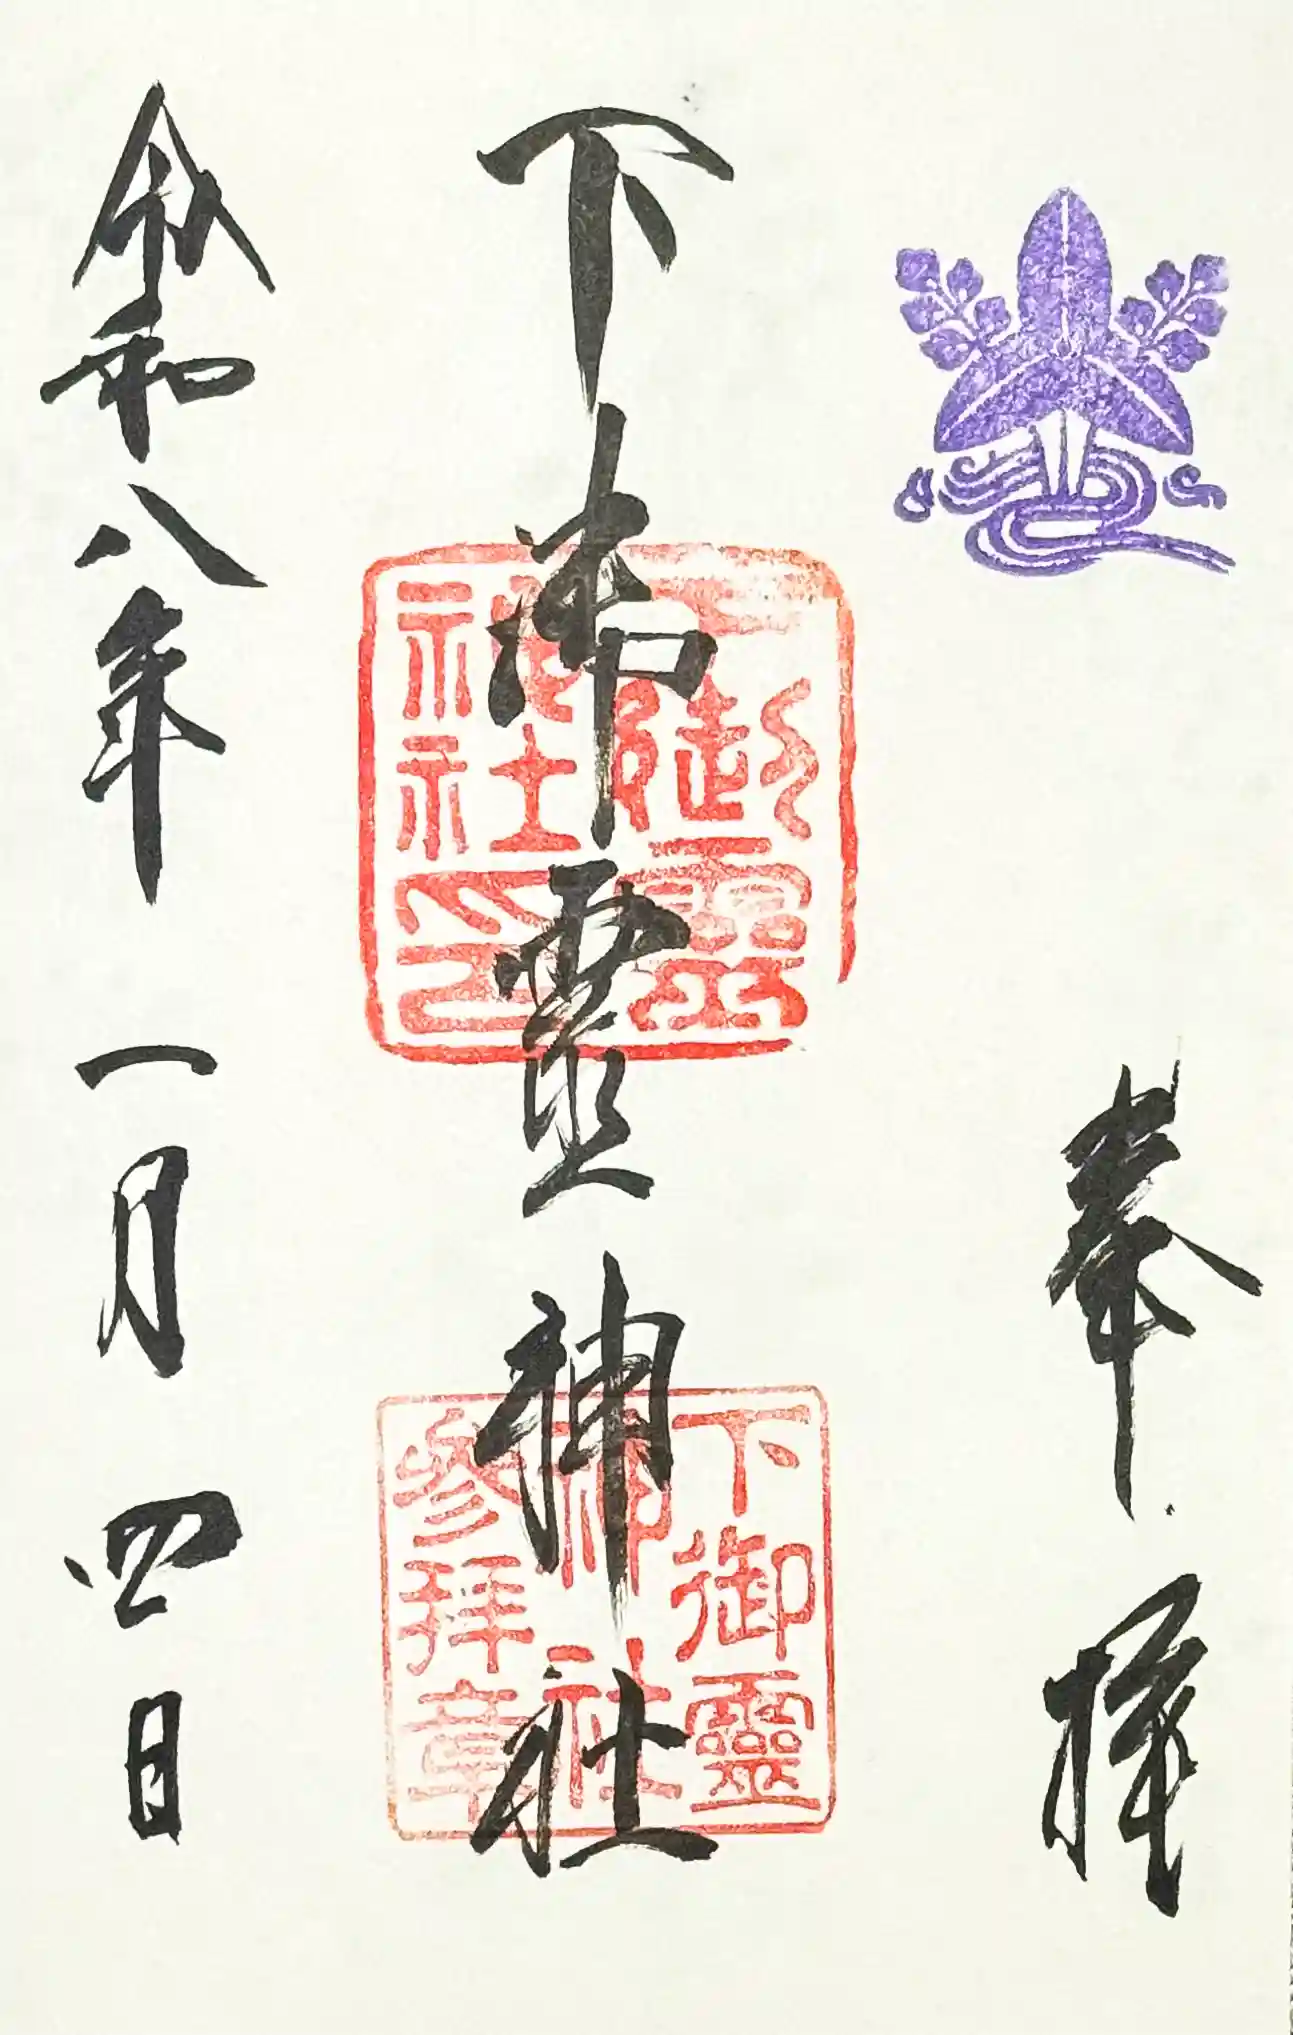 奉拝
下御靈神社
令和八年一月四日
下御靈神社印
下御靈神社参拝章